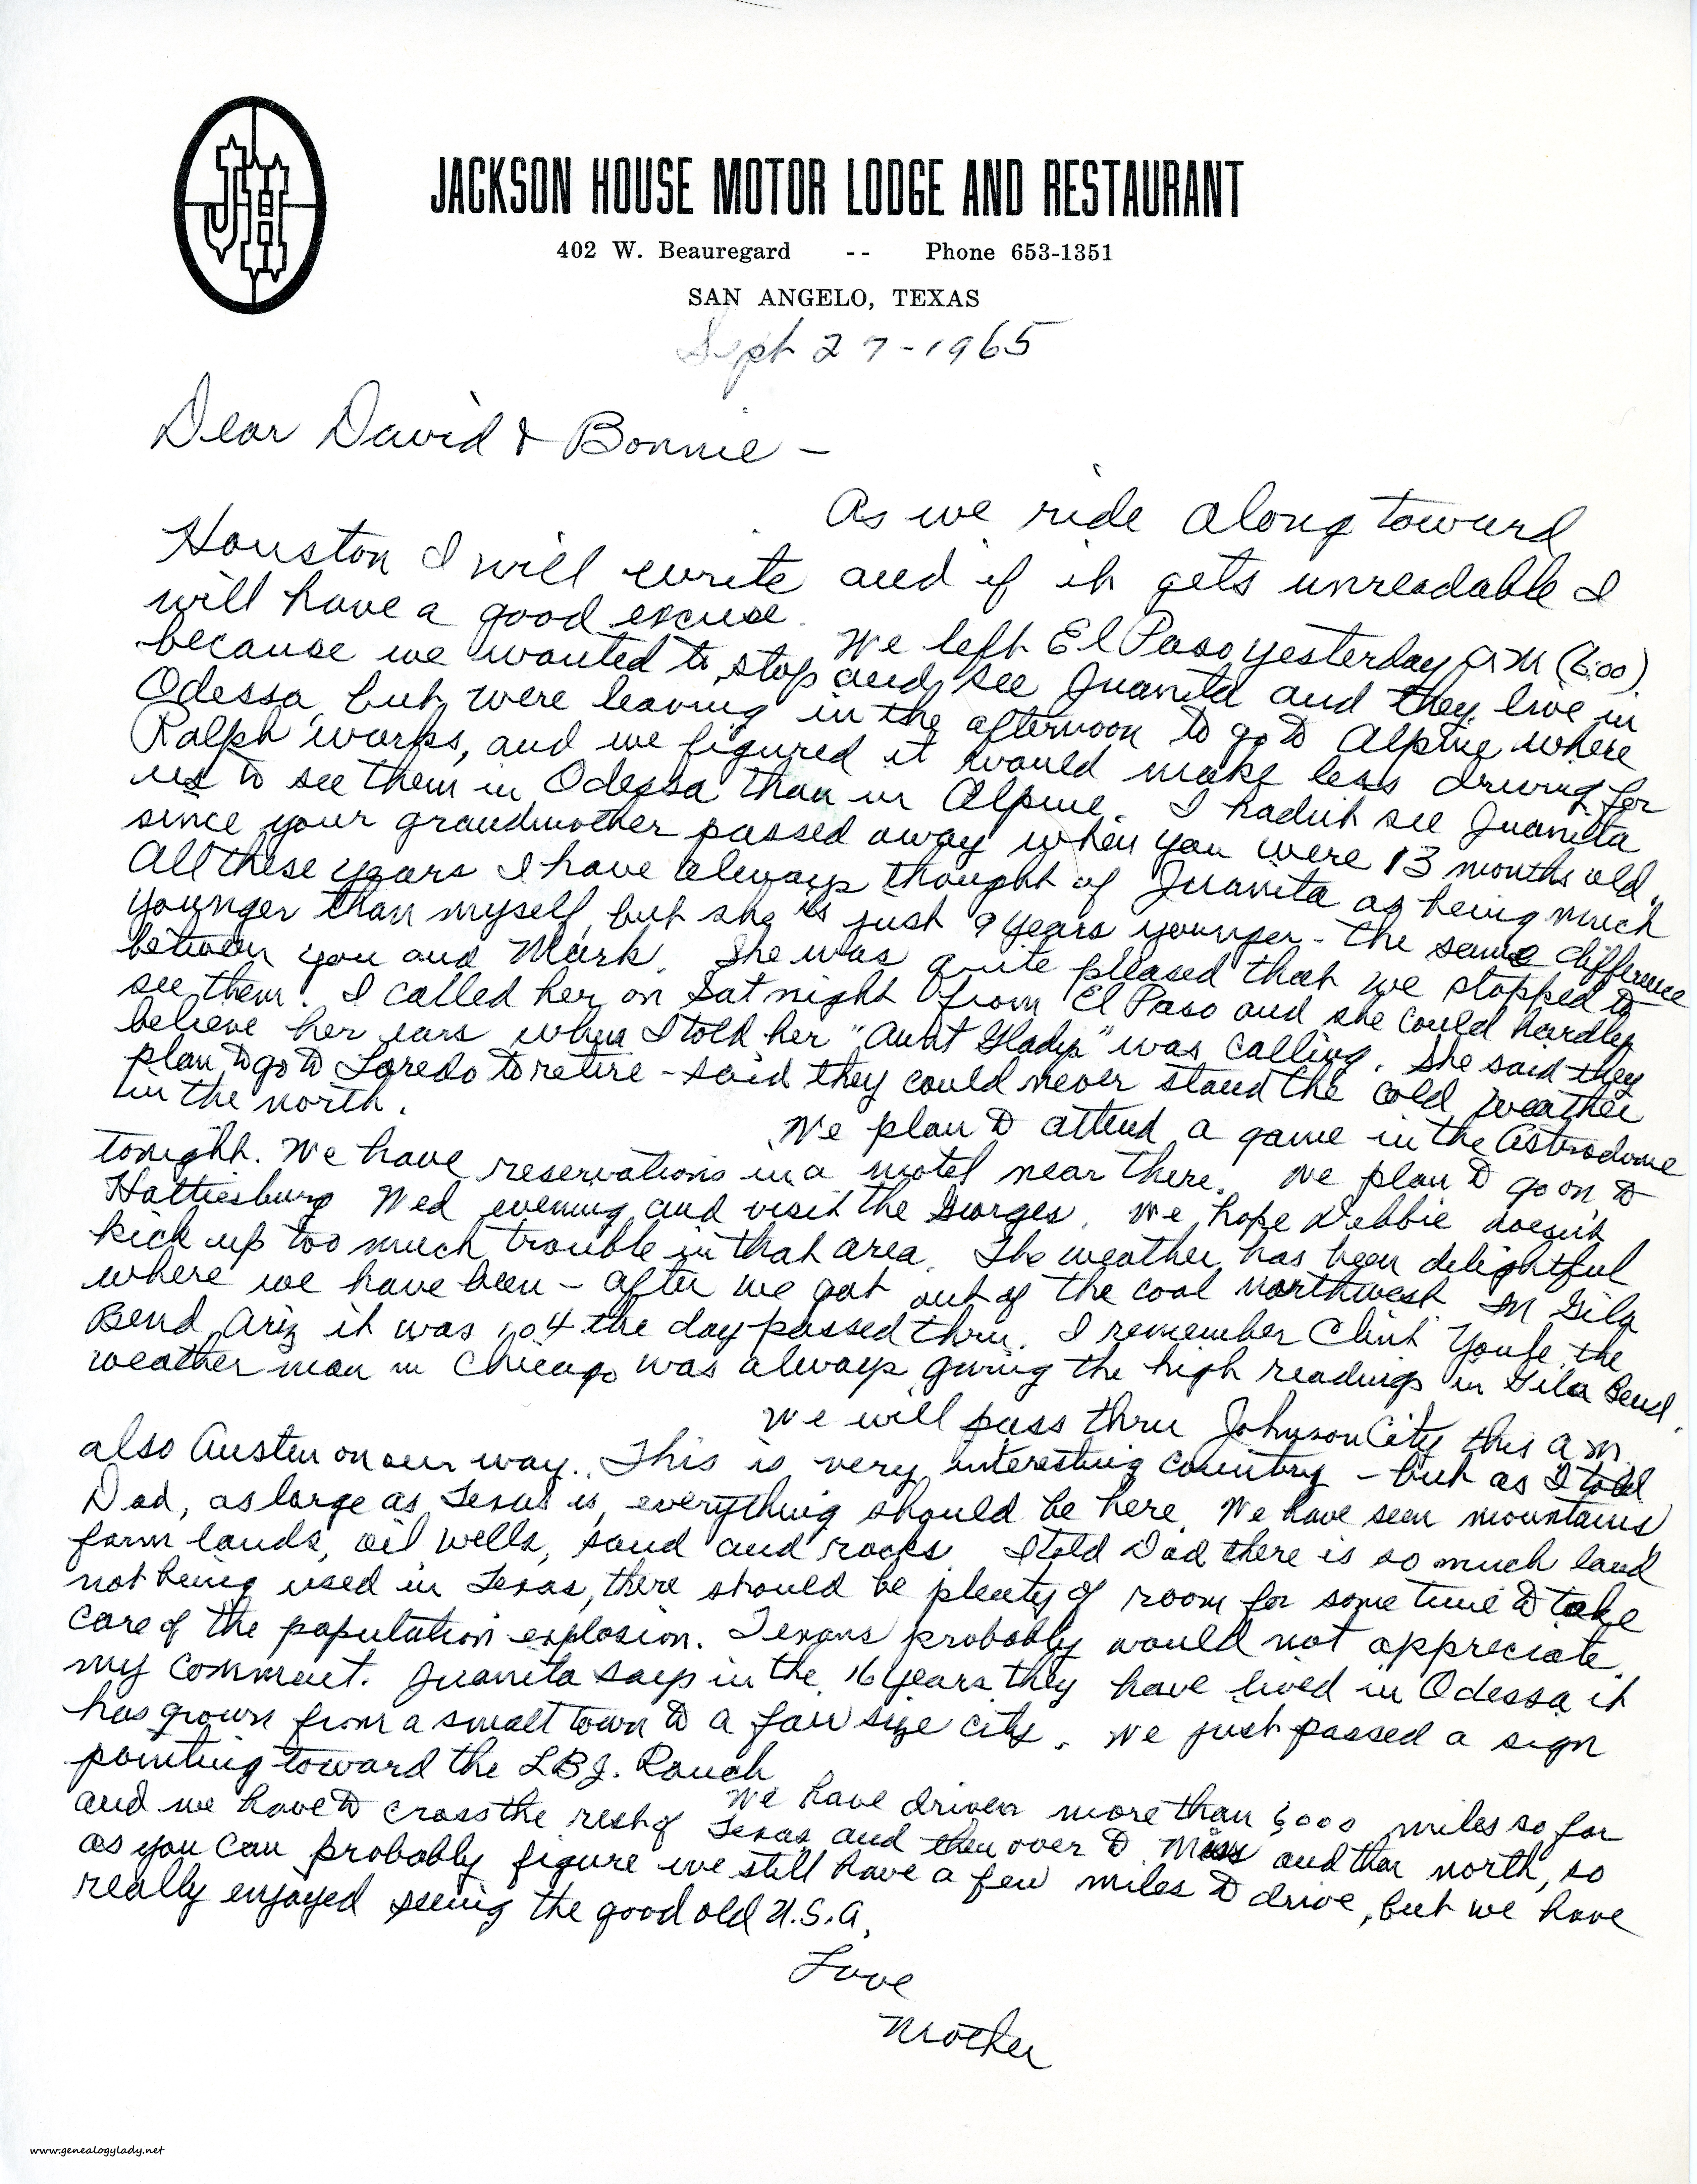 JH
JACKSON HOUSE MOTOR LODGE AND RESTAURANT
402 W. Beauregard -- Phone 653-1351
SAN ANGELO, TEXAS
Sept 27-1965
Dear David & Bonnie -
As we ride along toward
Houston I will write and if it gets unreadable I
will have a good excuse.
We left El Paso yesterday AM (6:00)
because we wanted to stop and see Juanita and they live in
Odessa, but were leaving in the afternoon to go to Alpine where
Ralph works, and we figured it would make less driving for
us to see them in Odessa than in Alpine. I hadn't see Juanita
since your grandmother passed away when you were 13 months old.
All these years I have always thought of Juanita as being much
younger than myself, but she is just 9 years younger - the same difference
between you and Mark. She was quite pleased that we stopped to
see them. I called her on Sat night from El Paso and she could hardly
believe her ears when I told her "Aunt Gladys" was calling. She said they
plan to go to Laredo to retire - said they could never stand the cold weather
in the north.
We plan to attend a game in the Astrodome
tonight. We have reservations in a motel near there. We plan to go on to
Hattiesburg Wed evening and visit the Georges. We hope Debbie doesn't
kick up too much trouble in that area. The weather has been delightful
where we have been - after we got out of the cool northwest. In Gila
Bend, Ariz it was 104 the day passed thru. I remember Clint Youle the
weather man in Chicago was always giving the high readings in Gila Bend.
We will pass thru Johnson City this a m.
also Austin on our way. This is very interesting country - but as I told
Dad, as large as Texas is, everything should be here. We have seen mountains
farm lands, oil wells, sand and rocks. I told Dad there is so much land
not being used in Texas, there should be plenty of room for some time to take
care of the population explosion. Texans probably would not appreciate
my comment. Juanita says in the 16 years they have lived in Odessa it
has grown from a small town to a fair size city. We just passed a sign
pointing toward the LBJ. Ranch
We have driven more than 6000 miles so far
and we have to cross the rest of Texas and then over to Miss and then north, so
as you can probably figure we still have a few miles to drive, but we have
really enjoyed seeing the good old U.S.A.
Love
Mother
www.genealogylady.net